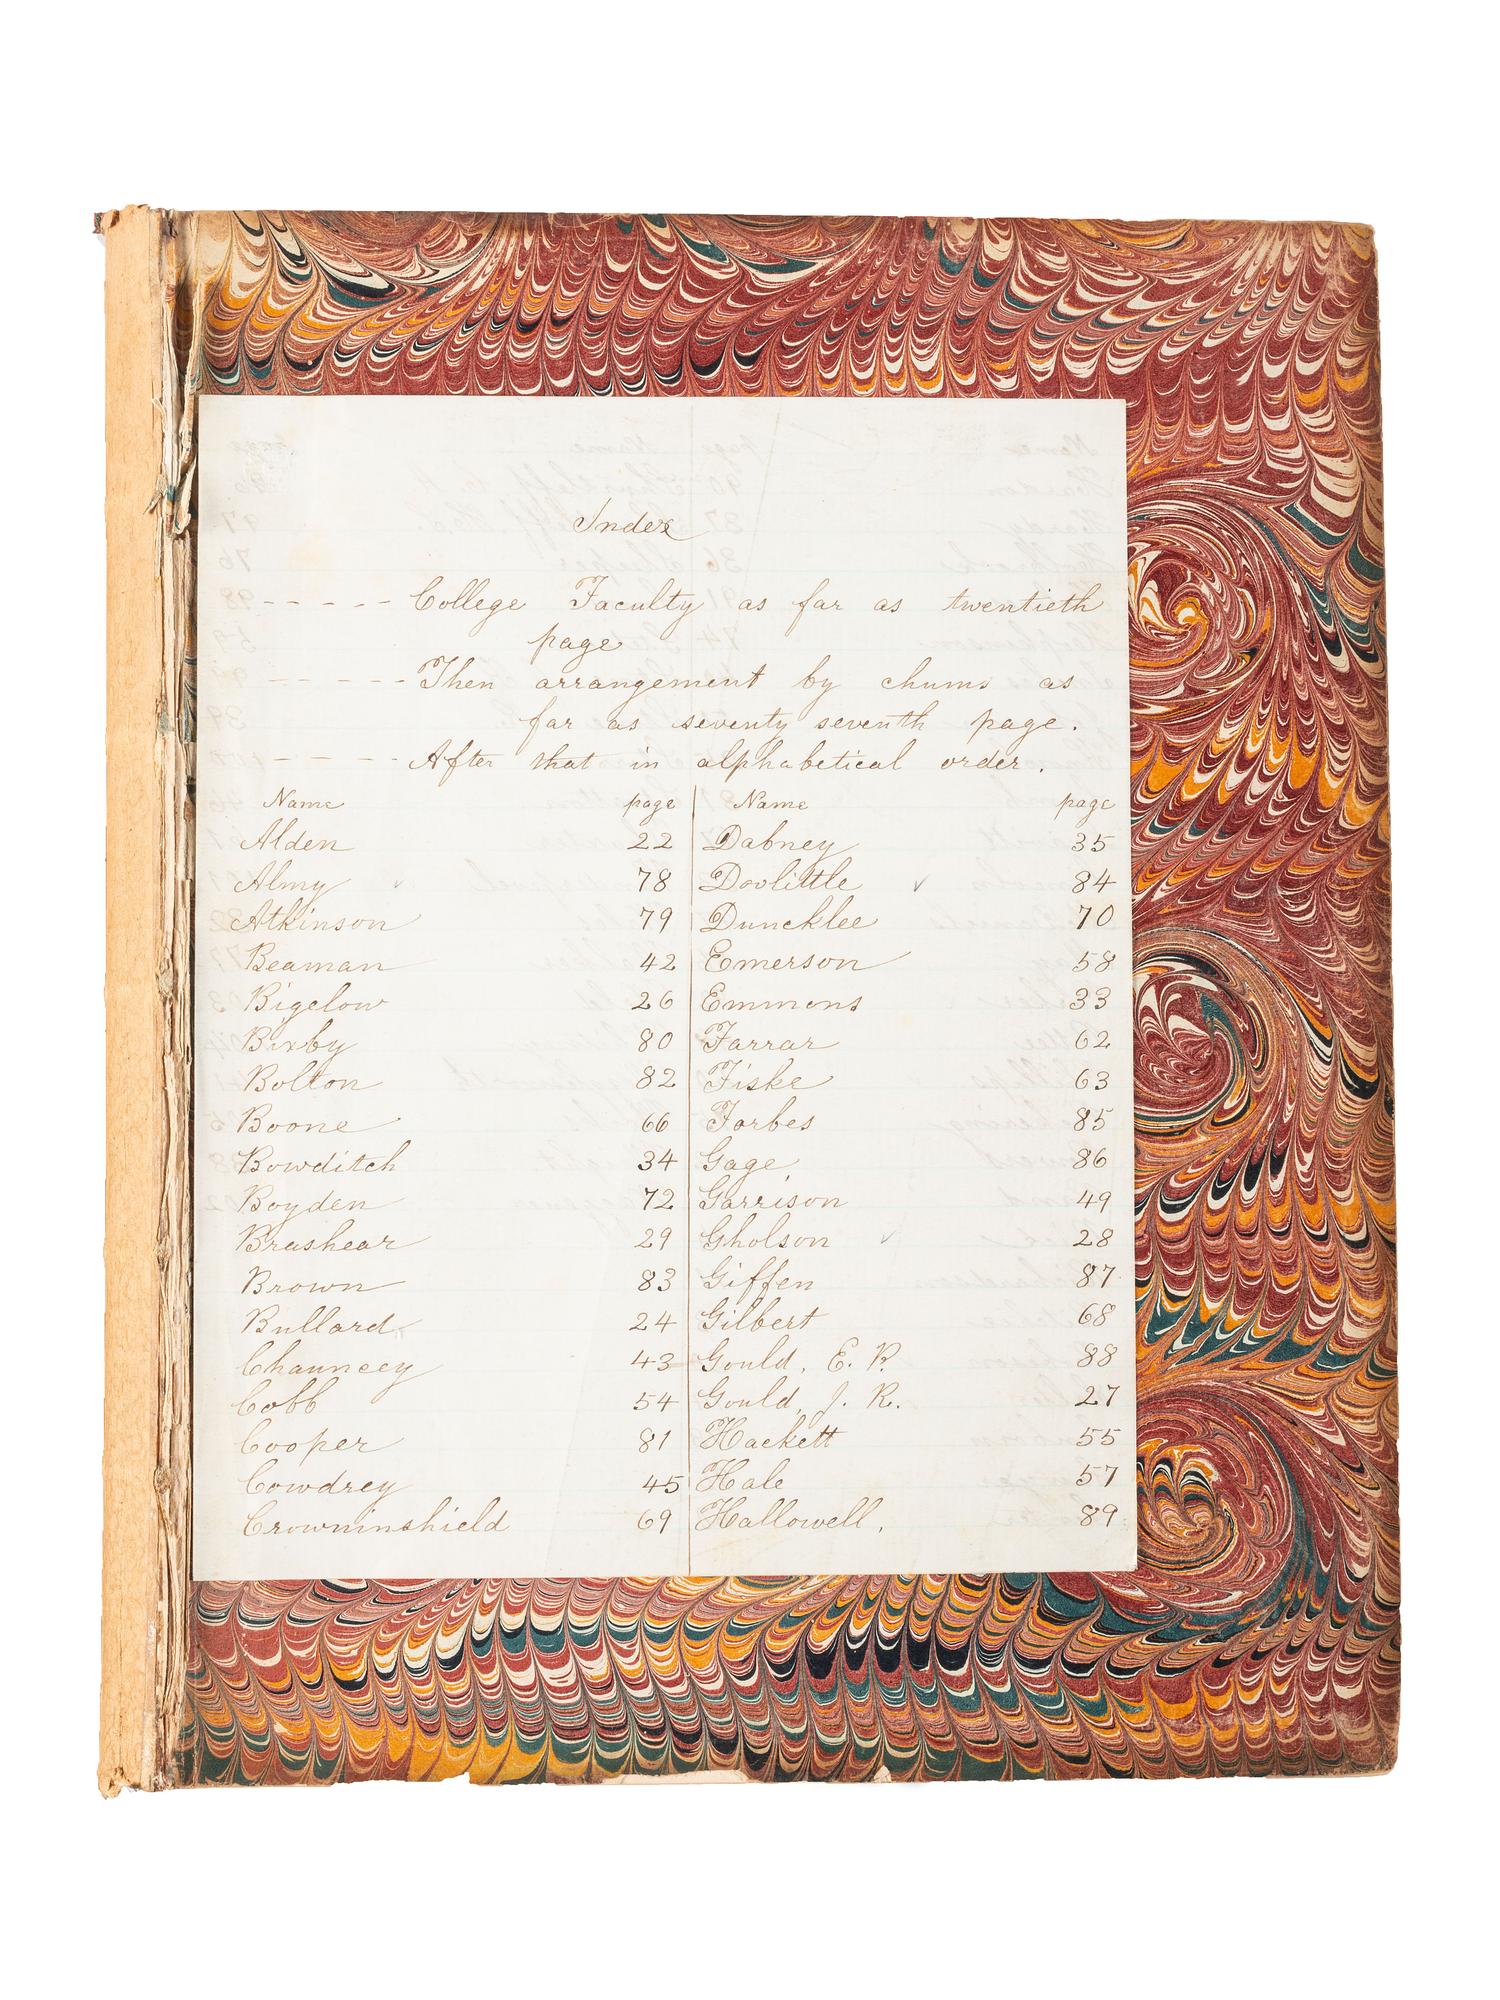 Index
- - - - - College Faculty as far as twentieth
page
- - - - - - Then arrangement by chums as
far as seventy seventh page.
- - - - - After that in alphabetical order.
Name page
Alden 22
Almy ✓ 78
Atkinson 79
Beaman 42
Bigelow 26
Bixby 80
Bolton 82
Boone 66
Bowditch 34
Boyden 72
Brashear 29
Brown 83
Bullard 24
Chauncey 43
Cobb 54
Cooper 81
Cowdrey 45
Crowninshield 69
Name page
Dabney 35
Doolittle ✓ 84
Duncklee 70
Emerson 58
Emmons 33
Farrar 62
Fiske 63
Forbes 85
Gage 86
Garrison 49
Gholson ✓ 28
Giffen 87
Gilbert 68
Gould, E. P. 88
Gould, J. R. 27
Hackett 55
Hale 57
Hallowell, 89